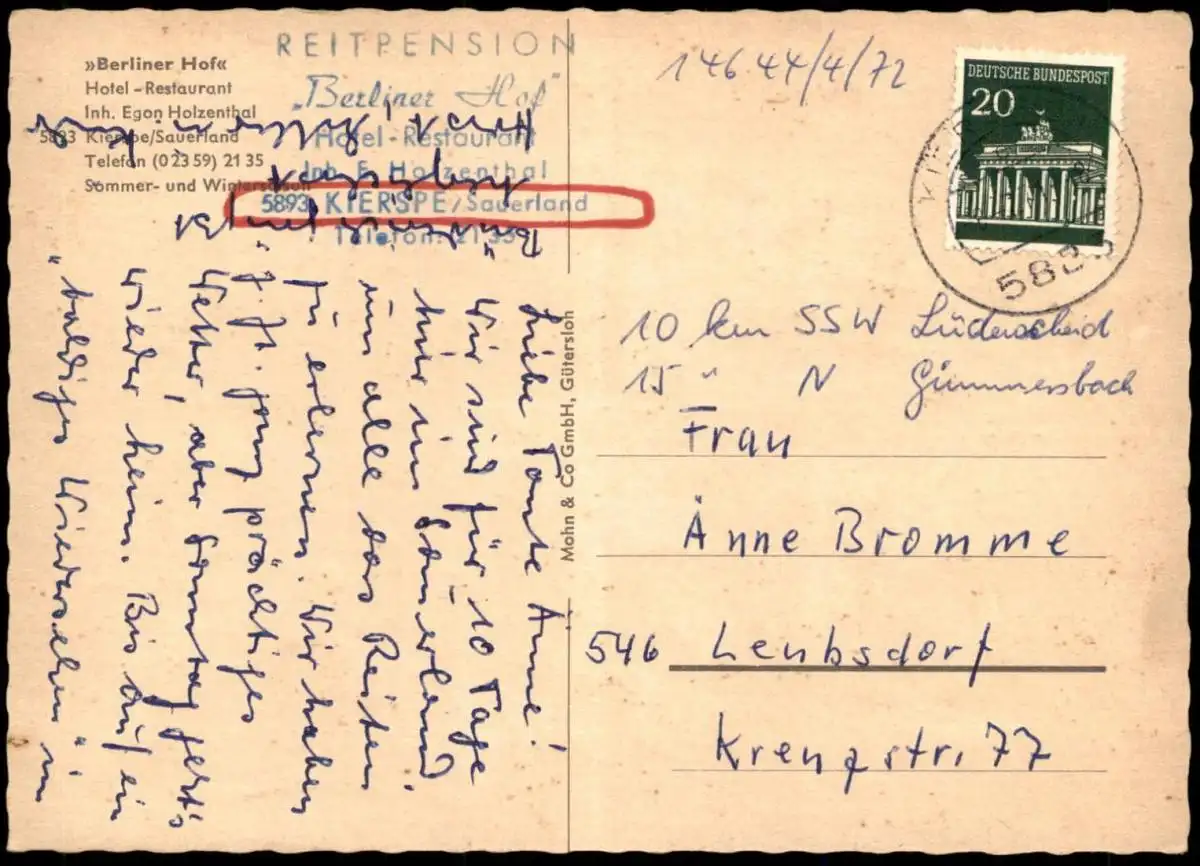 »Berliner Hof«
Hotel-Restaurant
Inh. Egon Holzenthal
5883 Kierspe/Sauerland
Telefon (0 23 59) 21 35
Sommer- und Wintersaison
REITPENSION
„Berliner Hof"
Hotel-Restaurant
Inh. E. Holzenthal
5893 KIERSPE/Sauerland
Telefon: 2135
Liebe Tante Änne!
Wir sind für 10 Tage
hier im Sauerland,
um alle das Reiten
zu erlernen. Wir haben
z. Zt. ganz prächtiges
Wetter, aber Sonntag geht's
wieder heim. Bis auf ein
"baldiges Wiedersehn" in
Mohn & Co GmbH, Gütersloh
14644/4/72
DEUTSCHE BUNDESPOST
20
KIERSPE
5883
10 km SSW Lüdenscheid
15 " N Gummersbach
Frau
Änne Bromme
546 Leubsdorf
Kreuzstr. 77